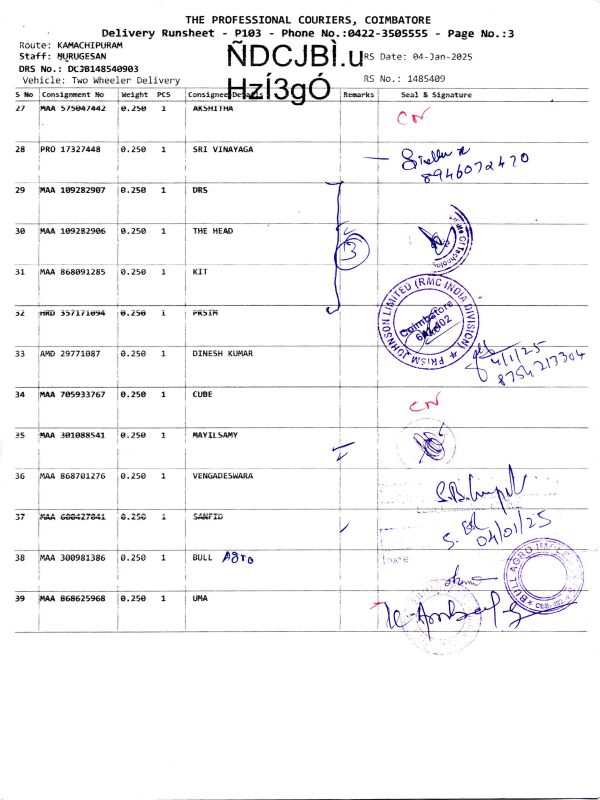 THE PROFESSIONAL COURIERS, COIMBATORE
Delivery Runsheet - P103 - Phone No.:0422-3505555 - Page No.:3
Route: KAMACHIPURAM
Staff: MURUGESAN
DRS No.: DCJB148540903
Vehicle: Two Wheeler Delivery
ÑDCJBÌ.u
HzÍ3gÓ
RS Date: 04-Jan-2025
RS No.: 1485409
S No Consignment No Weight PCS Consignee Details Remarks Seal & Signature
27 MAA 575047442 0.250 1 AKSHITHA CN
28 PRO 17327448 0.250 1 SRI VINAYAGA
8946072470
29 MAA 109282907 0.250 1 DRS
30 MAA 109282906 0.250 1 THE HEAD
3
31 MAA 868091285 0.250 1 KIT
32 HRD 357171094 0.250 1 PRSIM
PRISM JOHNSON LIMITED (RMC INDIA DIVISION)
Coimbatore
33 AMD 29771087 0.250 1 DINESH KUMAR
4/1/25
8754213304
34 MAA 705933767 0.250 1 CUBE CN
35 MAA 301088541 0.250 1 MAYILSAMY
36 MAA 868701276 0.250 1 VENGADESWARA
37 MAA 688427841 0.250 1 SANFID
04/01/25
38 MAA 300981386 0.250 1 BULL Agro
DATE
BULL AGRO
39 MAA 868625968 0.250 1 UMA